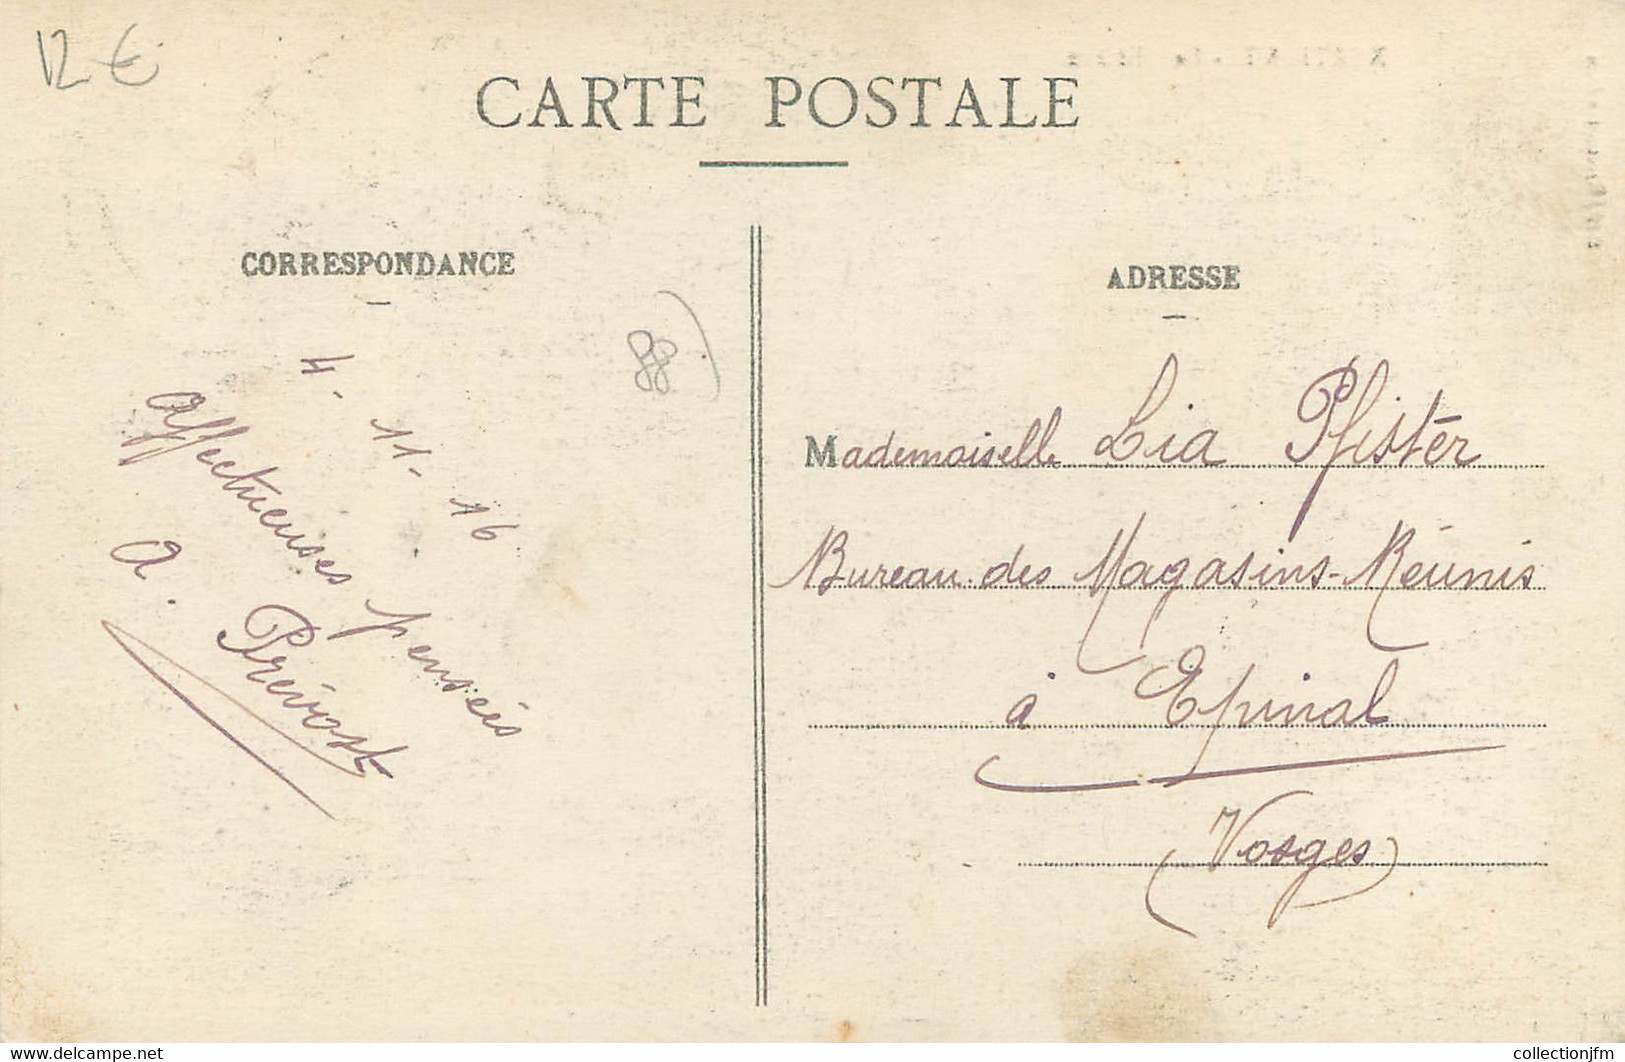 12 €
CARTE POSTALE
CORRESPONDANCE
4-11-16
Affectueuses pensées
A. Prévost
88)
ADRESSE
Mademoiselle Lia Pfister
Bureau des Magasins-Réunis
à Epinal
(Vosges)
www.delcampe.net
collectionjfm